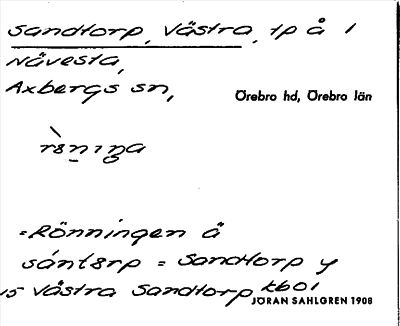 Sandtorp, Västra, tp å 1
Nävesta,
Axbergs sn,
Örebro hd, Örebro län
rönıŋa
=Rönningen å
sántörp = Sandtorp y
15 Västra Sandtorp kb01
JÖRAN SAHLGREN 1908